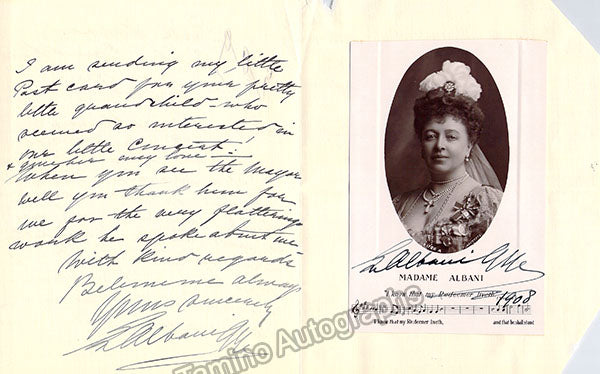 I am sending my little
Post card for your pretty
little grandchild who
seemed so interested in
our little Concert!
& give her my love –
When you see the Mayor
will you thank him for
me for the very flattering
words he spoke about me
With kind regards
Believe me always
Yours sincerely
E Albani Gye
E Albani Gye
MADAME ALBANI
I know that my Redeemer liveth.
1908
I know that my Redeemer liveth, and that he shall stand
Tamino Autographs